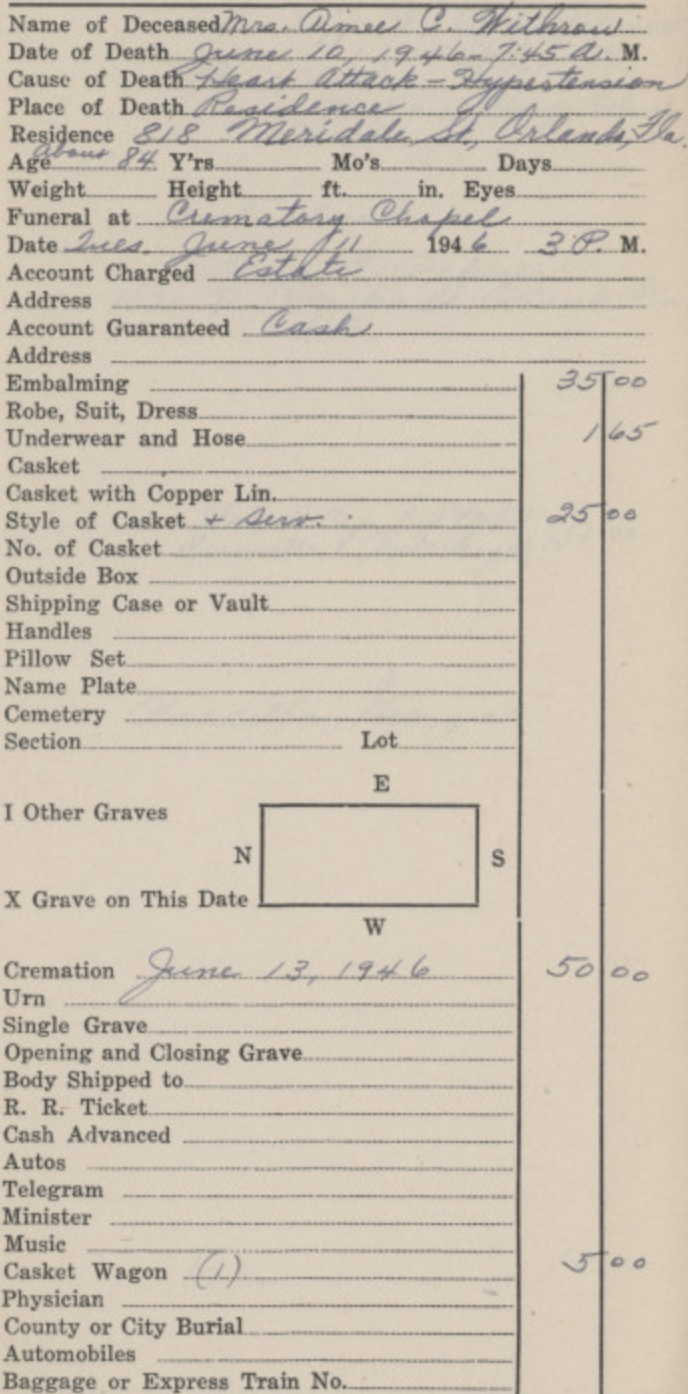 Name of Deceased Mrs. Aimee C. Withrow
Date of Death June 10, 1946 - 7:45 A. M.
Cause of Death Heart Attack - Hypertension
Place of Death Residence
Residence 818 Meridale St, Orlando, Fla.
Age About 84 Y'rs. Mo's. Days
Weight Height ft. in. Eyes
Funeral at Crematory Chapel
Date Tues. June 11 1946 3 P. M.
Account Charged Estate
Address
Account Guaranteed Cash
Address
Embalming 35 00
Robe, Suit, Dress
Underwear and Hose 1 65
Casket
Casket with Copper Lin.
Style of Casket + Serv. 25 00
No. of Casket
Outside Box
Shipping Case or Vault
Handles
Pillow Set
Name Plate
Cemetery
Section Lot
E
I Other Graves
N S
X Grave on This Date
W
Cremation June 13, 1946 50 00
Urn
Single Grave
Opening and Closing Grave
Body Shipped to
R. R. Ticket
Cash Advanced
Autos
Telegram
Minister
Music
Casket Wagon (1) 5 00
Physician
County or City Burial
Automobiles
Baggage or Express Train No.